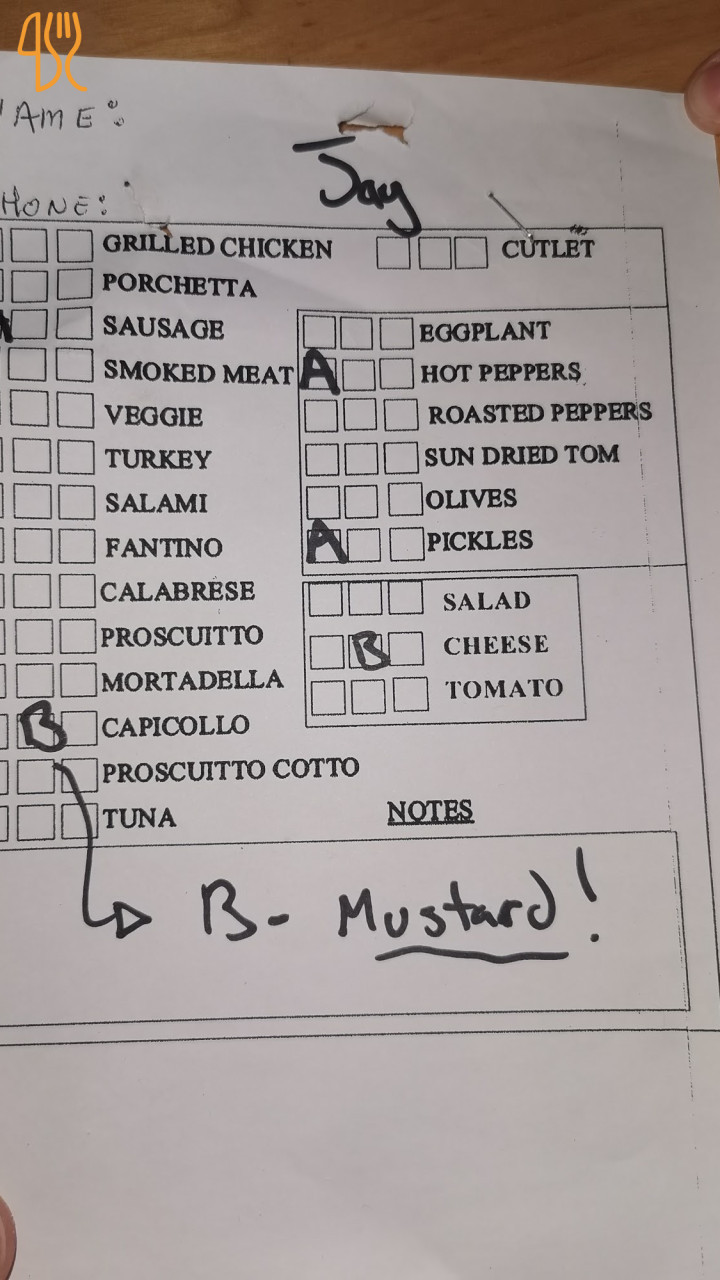 AME:
Jay
HONE:
GRILLED CHICKEN CUTLET
PORCHETTA
SAUSAGE EGGPLANT
SMOKED MEAT A HOT PEPPERS
VEGGIE ROASTED PEPPERS
TURKEY SUN DRIED TOM
SALAMI OLIVES
FANTINO A PICKLES
CALABRESE SALAD
PROSCUITTO B CHEESE
MORTADELLA TOMATO
B CAPICOLLO
PROSCUITTO COTTO
TUNA NOTES
B- Mustard!